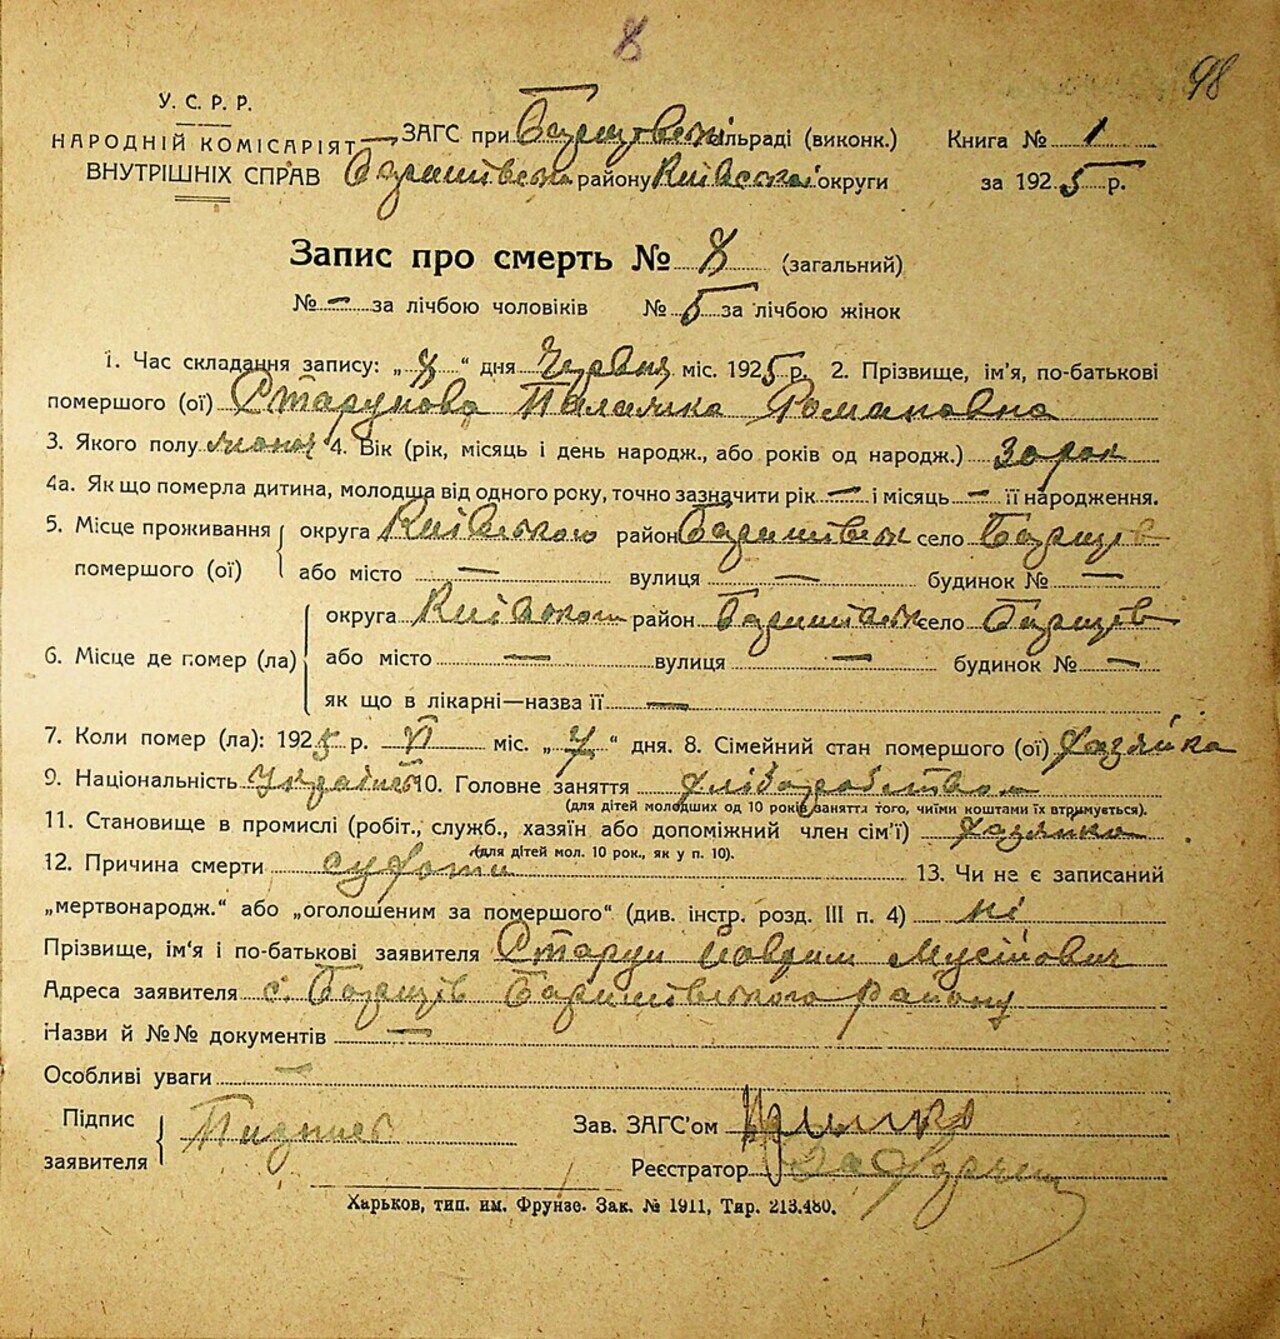 8
98
У. С. Р. Р.
НАРОДНІЙ КОМІСАРІЯТ
ВНУТРІШНІХ СПРАВ
ЗАГС при сільраді (виконк.)
Баришівськ району Київської округи
Книга № 1
за 1925 р.
Запис про смерть № 8 (загальний)
№ — за лічбою чоловіків № 5 за лічбою жінок
1. Час складання запису: „8“ дня Червня міс. 1925 р. 2. Прізвище, ім'я, по-батькові
помершого (ої) Старунова Палажка Романовна
3. Якого полу жіноч 4. Вік (рік, місяць і день народж., або років од народж.)
4а. Як що померла дитина, молодша від одного року, точно зазначити рік — і місяць — її народження.
5. Місце проживання помершого (ої) округа Київською район Баришівськ село Борщів
або місто — вулиця — будинок № —
6. Місце де помер (ла) округа район Баришівськ село Борщів
або місто — вулиця — будинок № —
як що в лікарні—назва її —
7. Коли помер (ла): 1925 р. VI міс. „7“ дня. 8. Сімейний стан помершого (ої) Хазяйка
9. Національність 10. Головне заняття хліборобством
(для дітей молодших од 10 років заняття того, чиїми коштами їх втримується).
11. Становище в промислі (робіт., служб., хазяїн або допоміжний член сім'ї) Хазяйка
(для дітей мол. 10 рок., як у п. 10).
12. Причина смерти сухоти 13. Чи не є записаний
„мертвонародж.“ або „оголошеним за помершого“ (див. інстр. розд. III п. 4) ні
Прізвище, ім'я і по-батькові заявителя Старун Мусійович
Адреса заявителя с. Борщів Баришівського Району
Назви й №№ документів —
Особливі уваги —
Підпис заявителя
Зав. ЗАГС'ом
Реєстратор
Харьков, тип. им. Фрунзе. Зак. № 1911, Тир. 213.480.